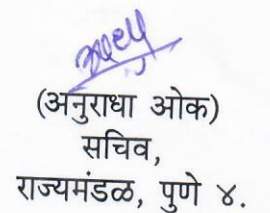 (अनुराधा ओक)
सचिव,
राज्यमंडळ, पुणे ४.